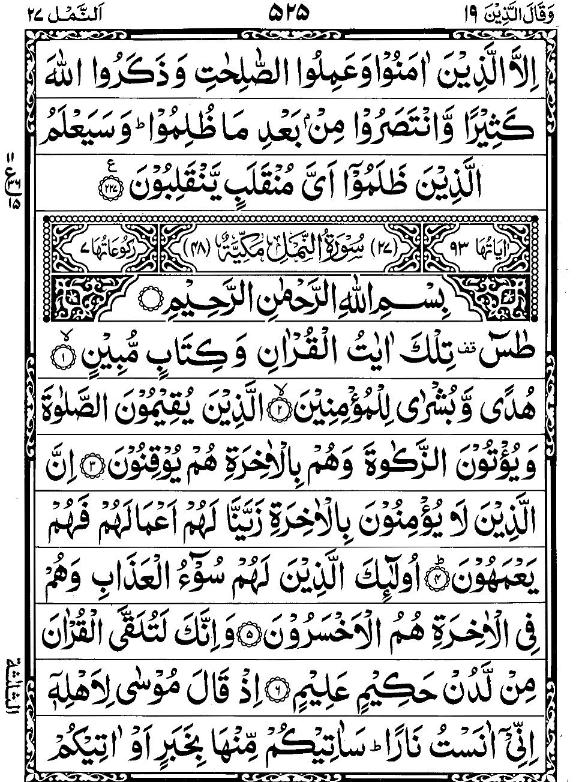 وَقَالَ الَّذِيْنَ ١٩ ٥٢٥ اَلنَّمْل ٢٧
اِلَّا الَّذِيْنَ اٰمَنُوْا وَعَمِلُوا الصّٰلِحٰتِ وَذَكَرُوا اللّٰهَ
كَثِيْرًا وَّانْتَصَرُوْا مِنْۢ بَعْدِ مَا ظُلِمُوْا ؕ وَسَيَعْلَمُ
الَّذِيْنَ ظَلَمُوْۤا اَىَّ مُنْقَلَبٍ يَّنْقَلِبُوْنَ ع ٢٢٧
١١ ع ٣٦ ١٥
اٰيَاتُهَا ٩٣ (٢٧) سُوْرَةُ النَّمْلِ مَكِّيَّةٌ (٤٨) رُكُوْعَاتُهَا ٧
بِسْمِ اللّٰهِ الرَّحْمٰنِ الرَّحِيْمِ
طٰسٓ قف تِلْكَ اٰيٰتُ الْقُرْاٰنِ وَكِتَابٍ مُّبِيْنٍ ١ ۙ
هُدًى وَّبُشْرٰى لِلْمُؤْمِنِيْنَ ٢ ۙ الَّذِيْنَ يُقِيْمُوْنَ الصَّلٰوةَ
وَيُؤْتُوْنَ الزَّكٰوةَ وَهُمْ بِالْاٰخِرَةِ هُمْ يُوْقِنُوْنَ ٣ اِنَّ
الَّذِيْنَ لَا يُؤْمِنُوْنَ بِالْاٰخِرَةِ زَيَّنَّا لَهُمْ اَعْمَالَهُمْ فَهُمْ
يَعْمَهُوْنَ ٤ ؕ اُولٰٓئِكَ الَّذِيْنَ لَهُمْ سُوْٓءُ الْعَذَابِ وَهُمْ
فِى الْاٰخِرَةِ هُمُ الْاَخْسَرُوْنَ ٥ وَاِنَّكَ لَتُلَقَّى الْقُرْاٰنَ
مِنْ لَّدُنْ حَكِيْمٍ عَلِيْمٍ ٦ اِذْ قَالَ مُوْسٰى لِاَهْلِهٖۤ
الثلثة
اِنِّىْۤ اٰنَسْتُ نَارًا ؕ سَاٰتِيْكُمْ مِّنْهَا بِخَبَرٍ اَوْ اٰتِيْكُمْ